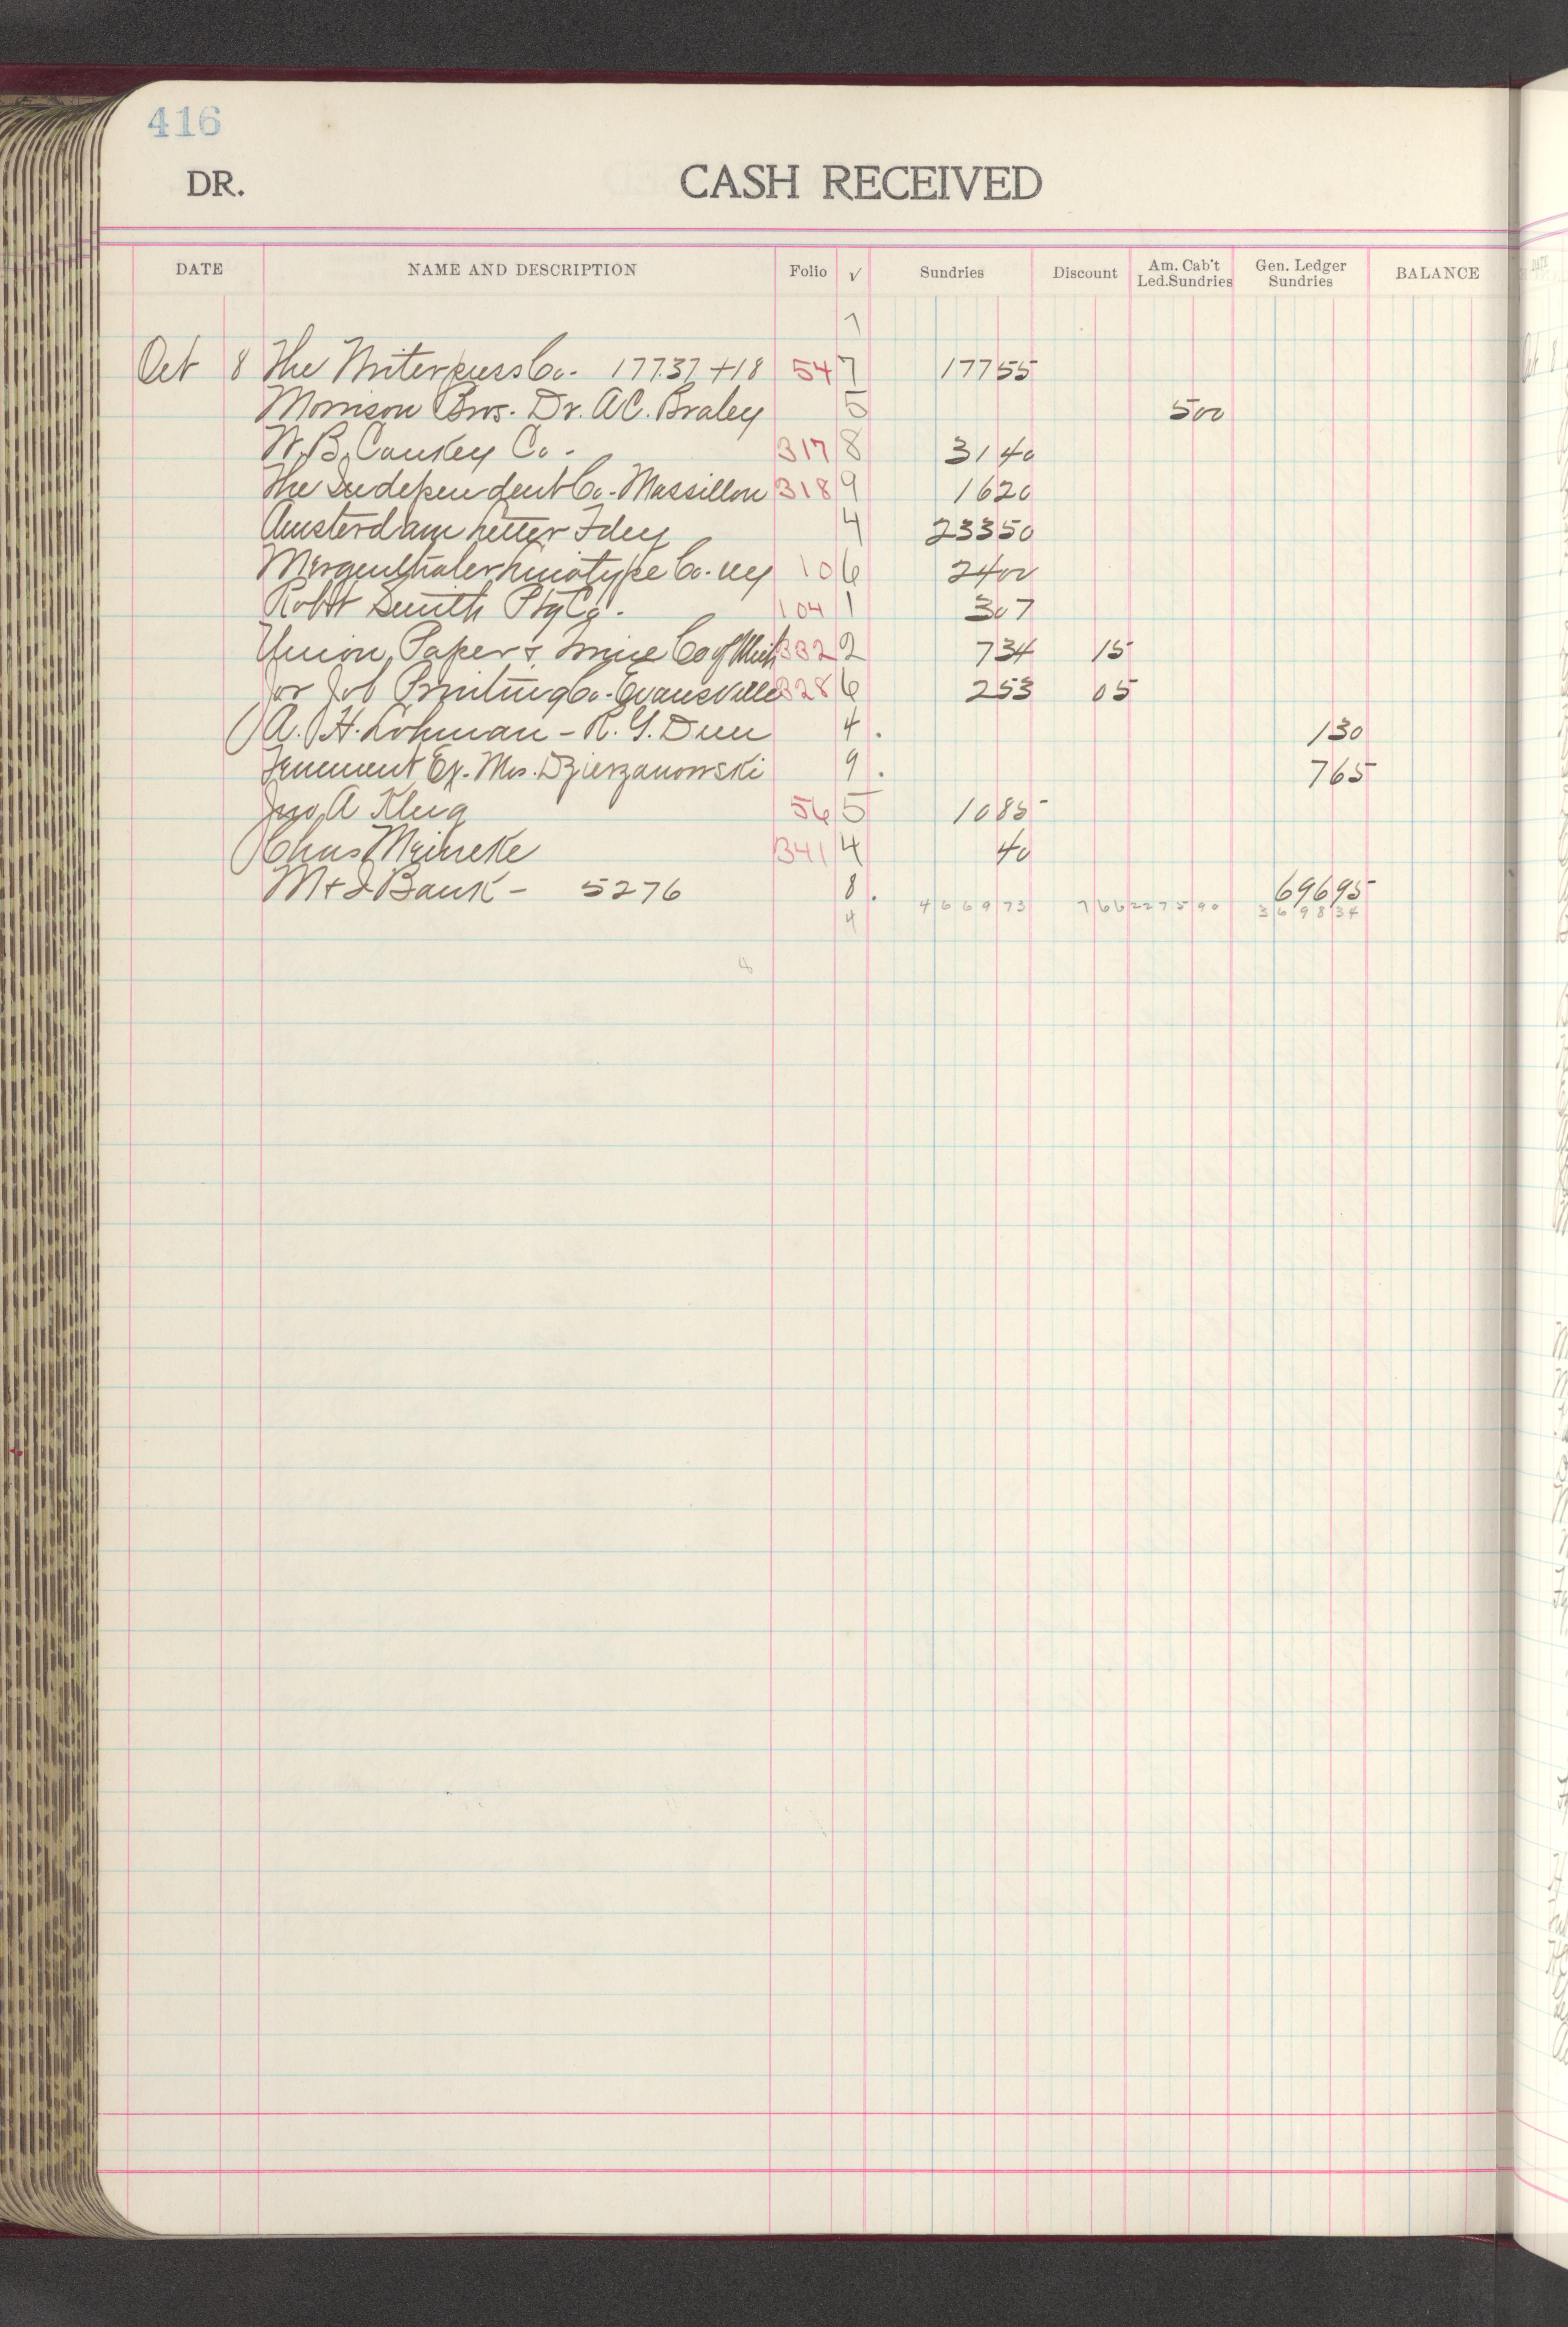 416
DR. CASH RECEIVED
DATE NAME AND DESCRIPTION Folio √ Sundries Discount Am. Cab't Led.Sundries Gen. Ledger Sundries BALANCE
7
Oct 8 The Writerpress Co. - 177.37 + 18 54 7 177 55
Morrison Bros. Dr. A.C. Braley 5 5 00
W.B. Conkey Co. - 317 8 31 40
The Independent Co. - Massillon 318 9 16 20
Amsterdam Letter Fdey 4 233 50
Mergenthaler Linotype Co. - NY 10 6 24 00
Robt Smith Ptg Co. - 104 1 3 07
Union Paper & Twine Co of Mich 332 2 7 34 15
Job Printing Co. - Evansville 328 6 2 53 05
A. H. Lohman - R. G. Dun 4 . 1 30
Tenement Ex. Mrs. Dzierzanowski 9 . 7 65
Jno. A Klug 56 5 10 85
Chas Meineke 341 4 40
M + I Bank - 5276 8 . 696 95
4 4669 73 7 66 2275 90 3698 34
8